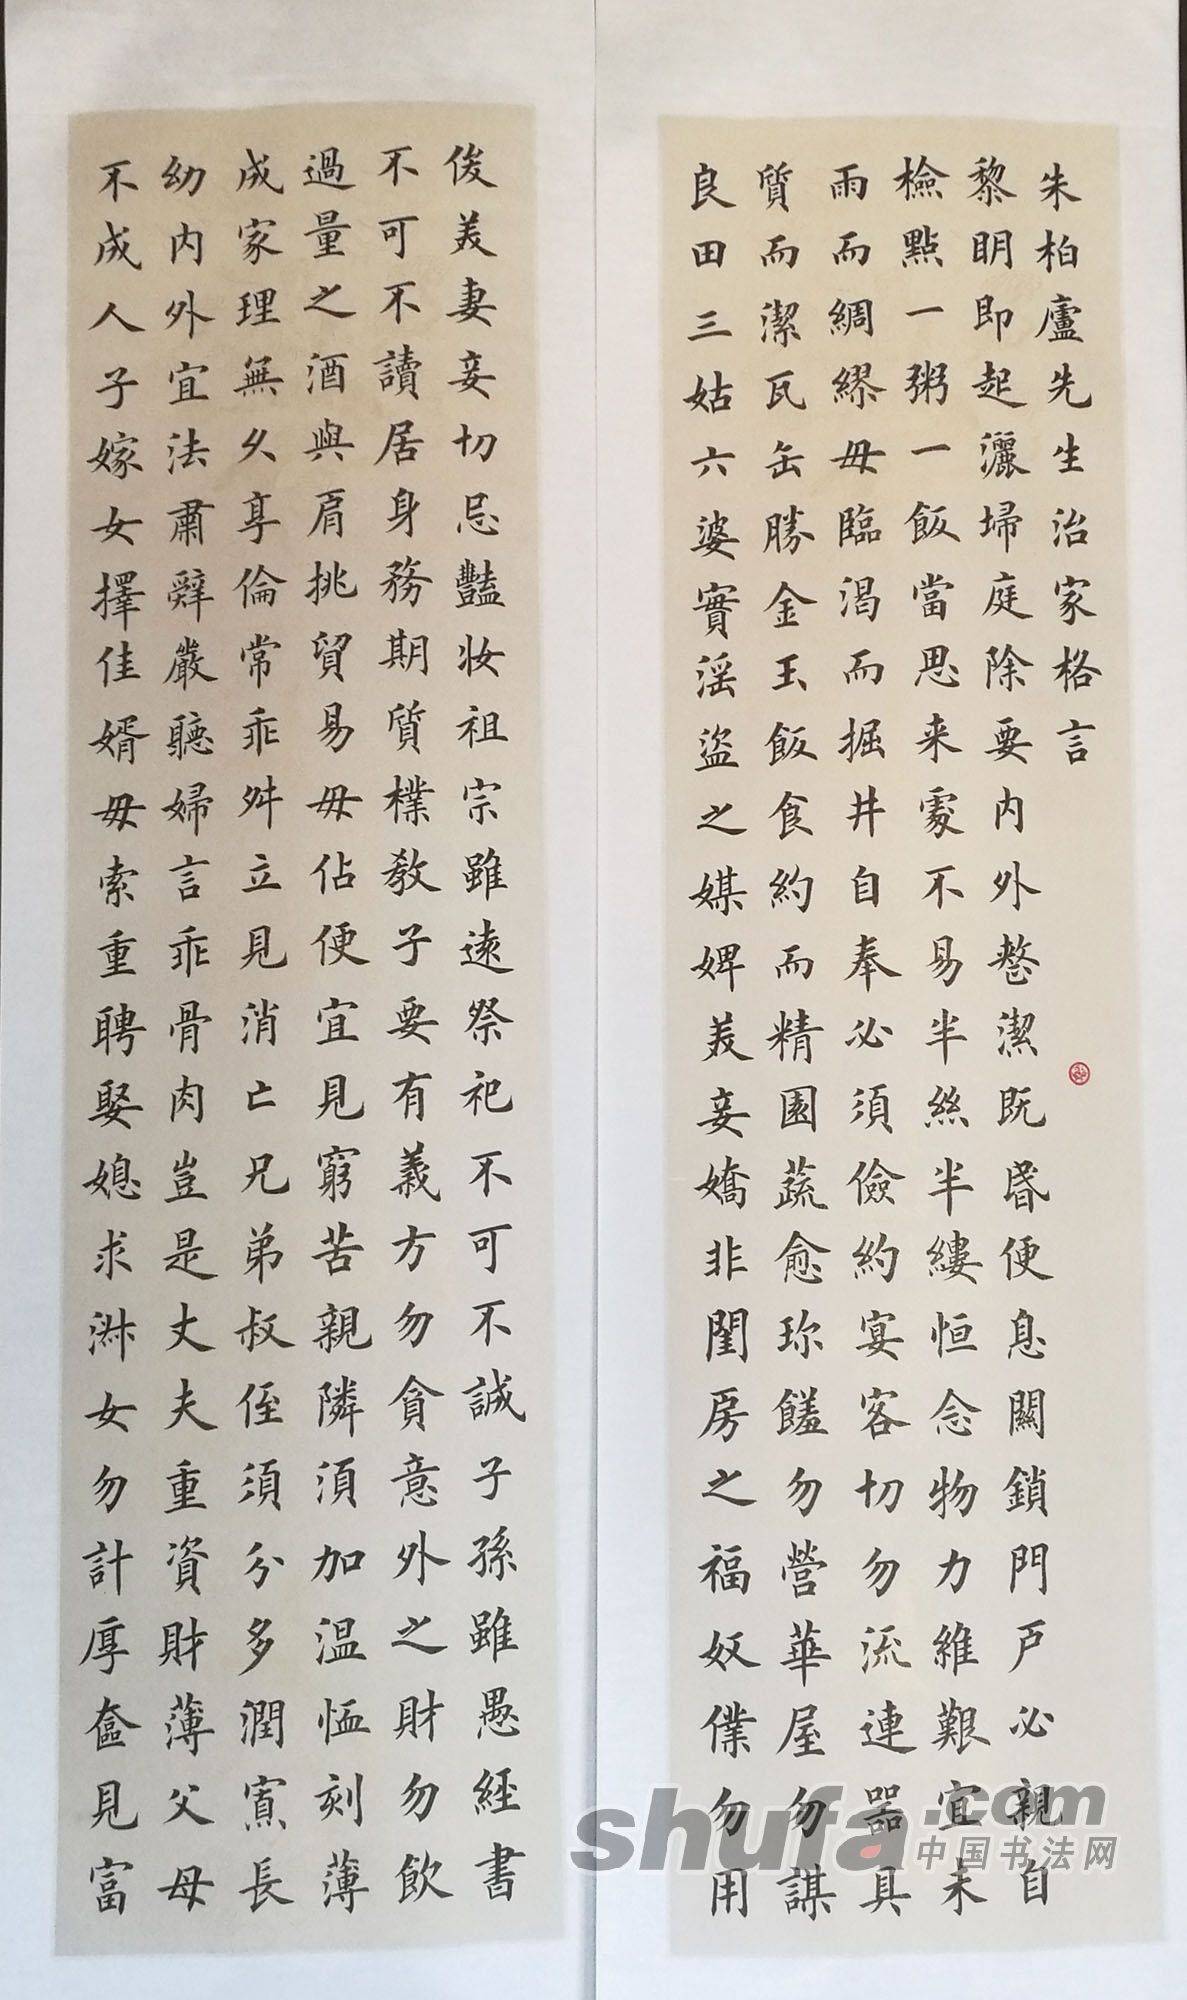 朱柏廬先生治家格言
黎明即起灑埽庭除要内外整潔既昏便息關鎖門户必親自
檢點一粥一飯當思来處不易半絲半縷恒念物力維艱宜未
雨而綢繆毋臨渴而掘井自奉必須儉約宴客切勿流連器具
質而潔瓦缶勝金玉飯食約而精園蔬愈珍饈勿營華屋勿謀
良田三姑六婆實淫盜之媒婢美妾嬌非閨房之福奴僕勿用
俊美妻妾切忌豔妆祖宗雖遠祭祀不可不誠子孫雖愚經書
不可不讀居身務期質樸教子要有義方勿貪意外之財勿飲
過量之酒與肩挑貿易毋佔便宜見窮苦親隣須加温恤刻薄
成家理無久享倫常乖舛立見消亡兄弟叔侄須分多潤寡長
幼内外宜法肅辭嚴聽婦言乖骨肉豈是丈夫重資財薄父母
不成人子嫁女擇佳婿毋索重聘娶媳求淑女勿計厚奩見富
shufa.com
中国书法网